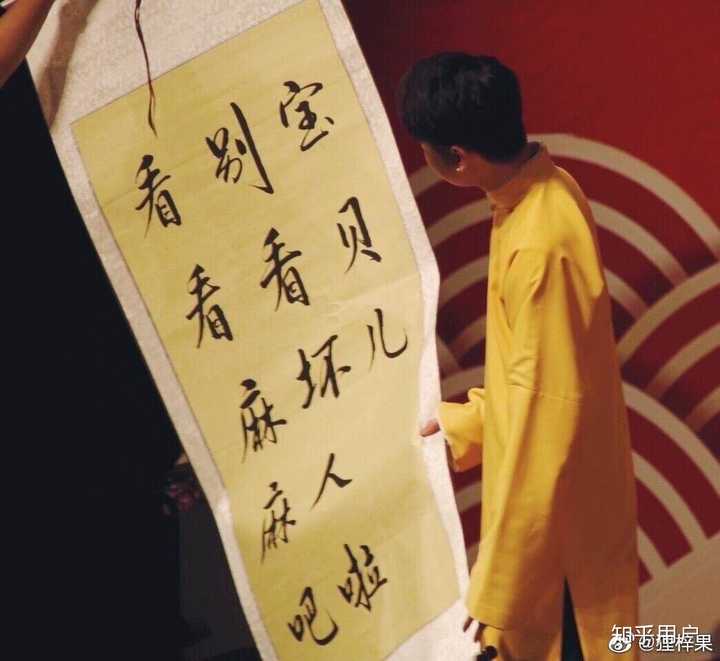 宝贝儿
别看坏人啦
看看麻麻吧
知乎用户
@狸梓果